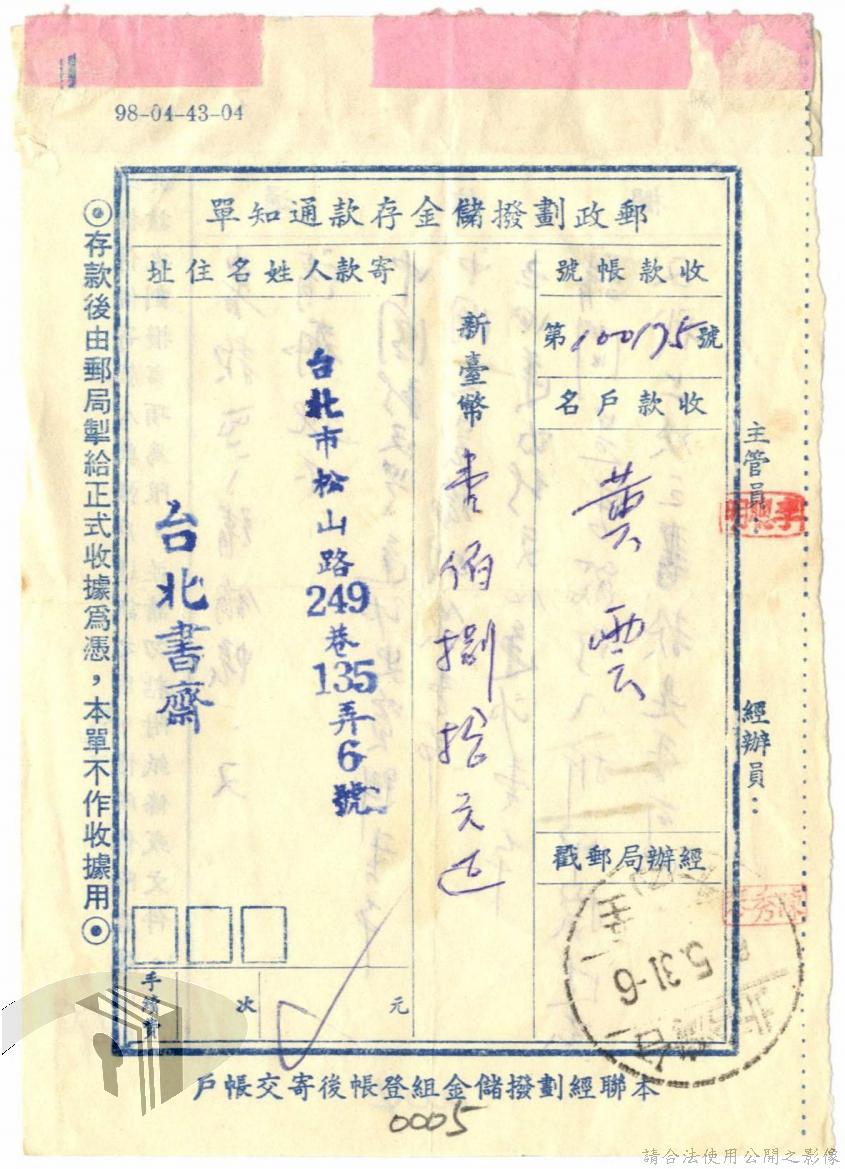 98-04-43-04
郵政劃撥儲金存款通知單
收款帳號
第100175號
收款戶名
黃雲
經辦局郵戳
新臺幣
壹佰捌拾元正
寄款人姓名住址
台北市松山路249巷135弄6號
台北書齋
手續費
次
元
主管員：
經辦員：
5.31-6
◉存款後由郵局掣給正式收據為憑，本單不作收據用◉
本聯經劃撥儲金組登帳後寄交帳戶
0005
請合法使用公開之影像